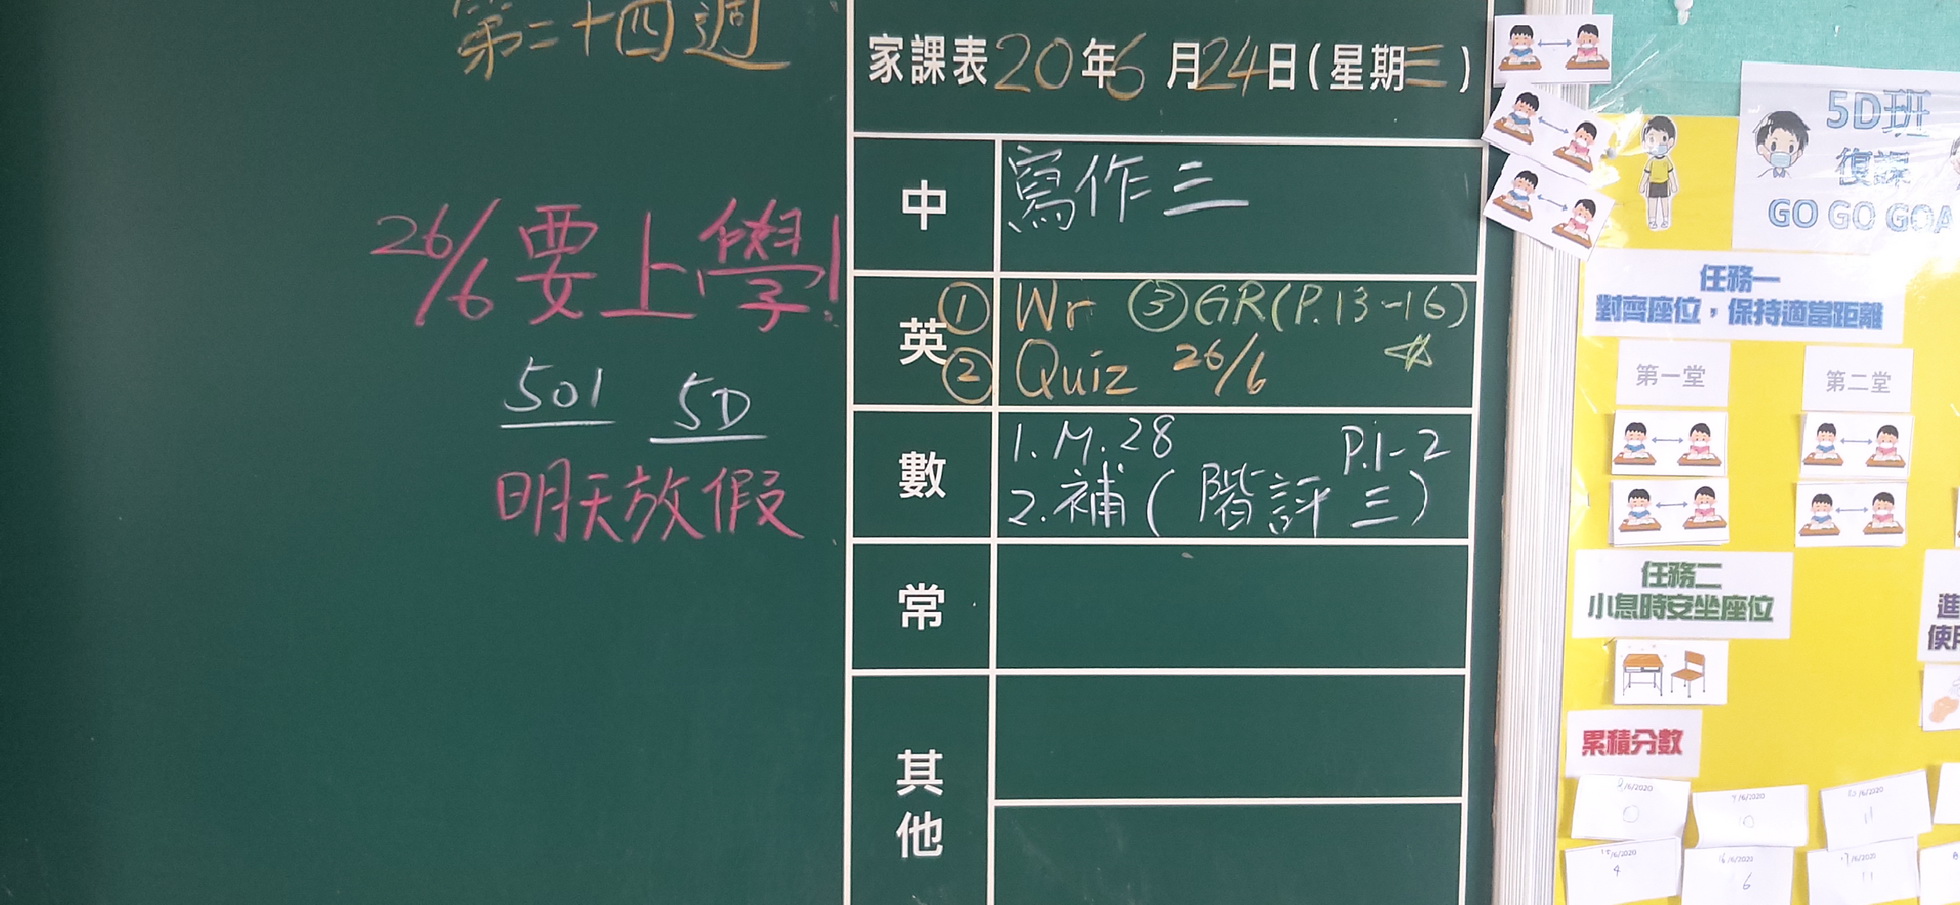 第二十四週
26/6 要上學!
501 5D
明天放假
家課表20年6月24日(星期三)
中 寫作三
英 ① Wr ③ GR(P.13-16)
② Quiz 26/6
數 1. M. 28 P.1-2
2. 補(階評三)
常
其他
5D班
復課
GO GO GOA
任務一
對齊座位，保持適當距離
第一堂 第二堂
任務二
小息時安坐座位
進
使用
累積分數
/6/2020 /6/2020 /6/2020
0 10 11
/6/2020 /6/2020 /6/2020
4 6 11